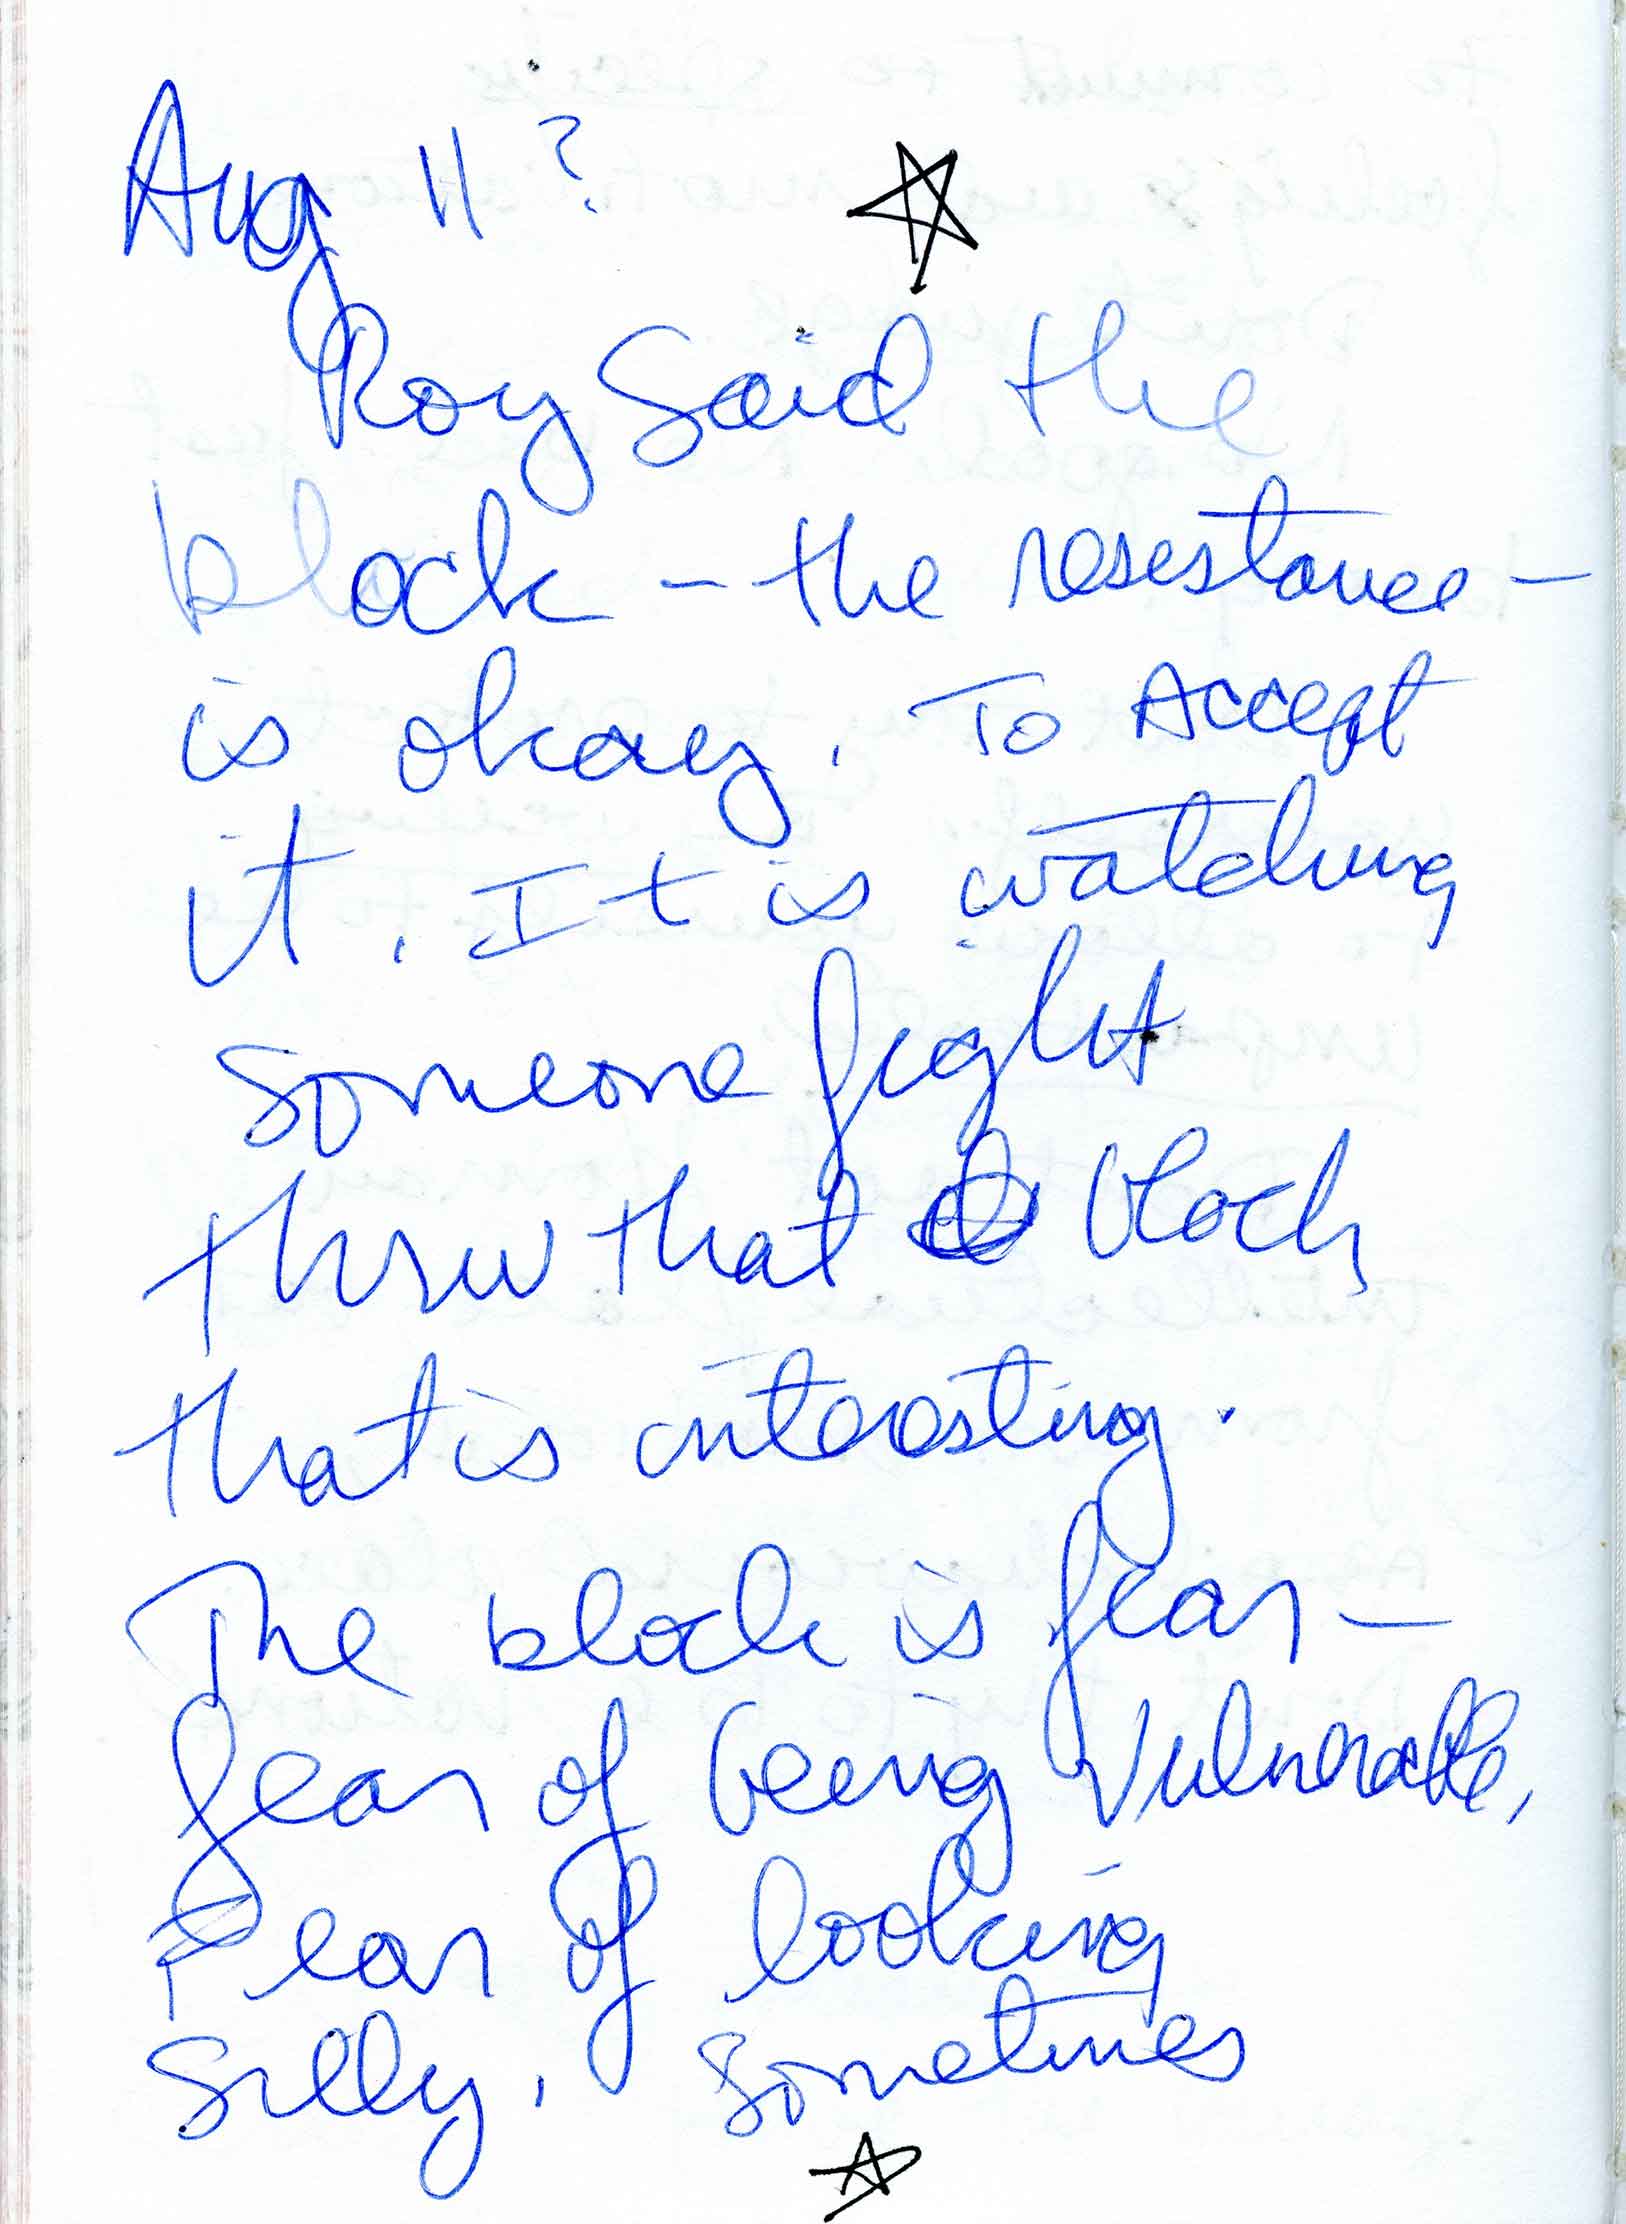 Aug 11?
Roy Said the
block – the resestance –
is okay. To Accept
it. It is watching
Someone fight
thru that block
that is interesting.
The block is fear –
fear of being Vulnerable,
Fear of looking
Silly. Sometimes